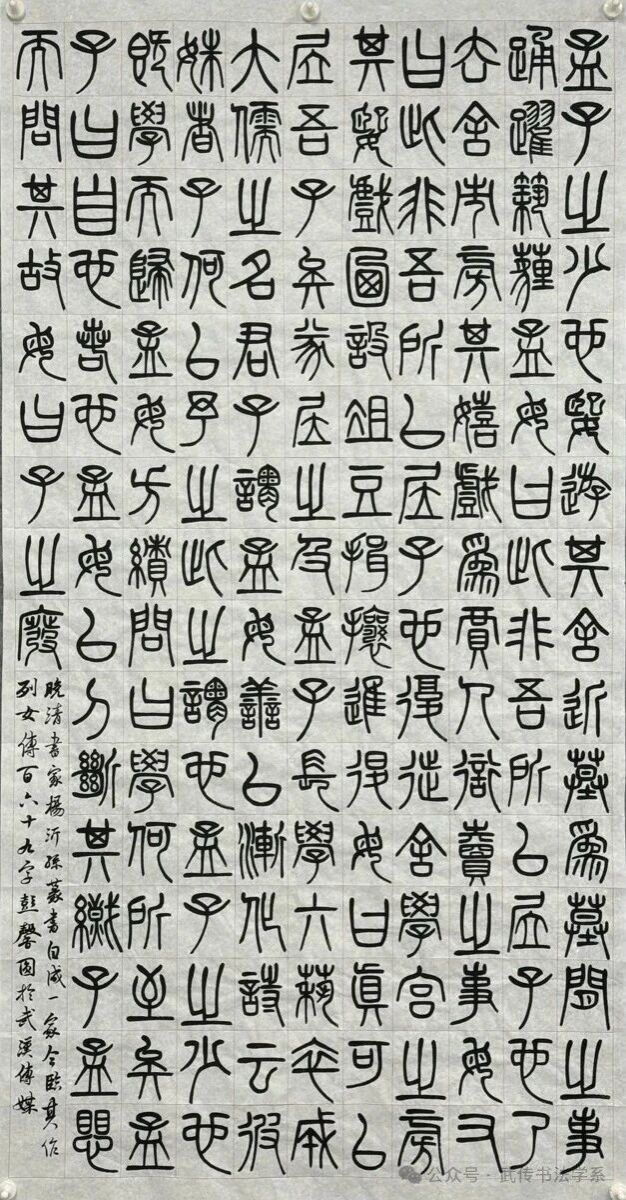 孟子之少也遊其舍近墓為墓間之事
踊躍築薶孟母曰此非吾所以居子也乃
去舍市房其嬉戲為賈人衒賣之事母又
曰此非吾所以居子也復徙舍學宮之房
其戲圖設俎豆揖攘進退母曰真可以
居吾子矣遂居之及孟子長學六藝卒成
大儒之名君子謂孟母善以漸化詩云彼
姝者子何以予之此之謂也孟子之少也
既學而歸孟母方績問曰學何所至矣孟
子曰自也若也孟母以刀斷其織子孟懼
而問其故母曰子之廢
晚清書家楊沂孫篆書自成一家今臨其作
列女傳百六十九字彭馨於武漢傳媒
公众号·武传书法学系